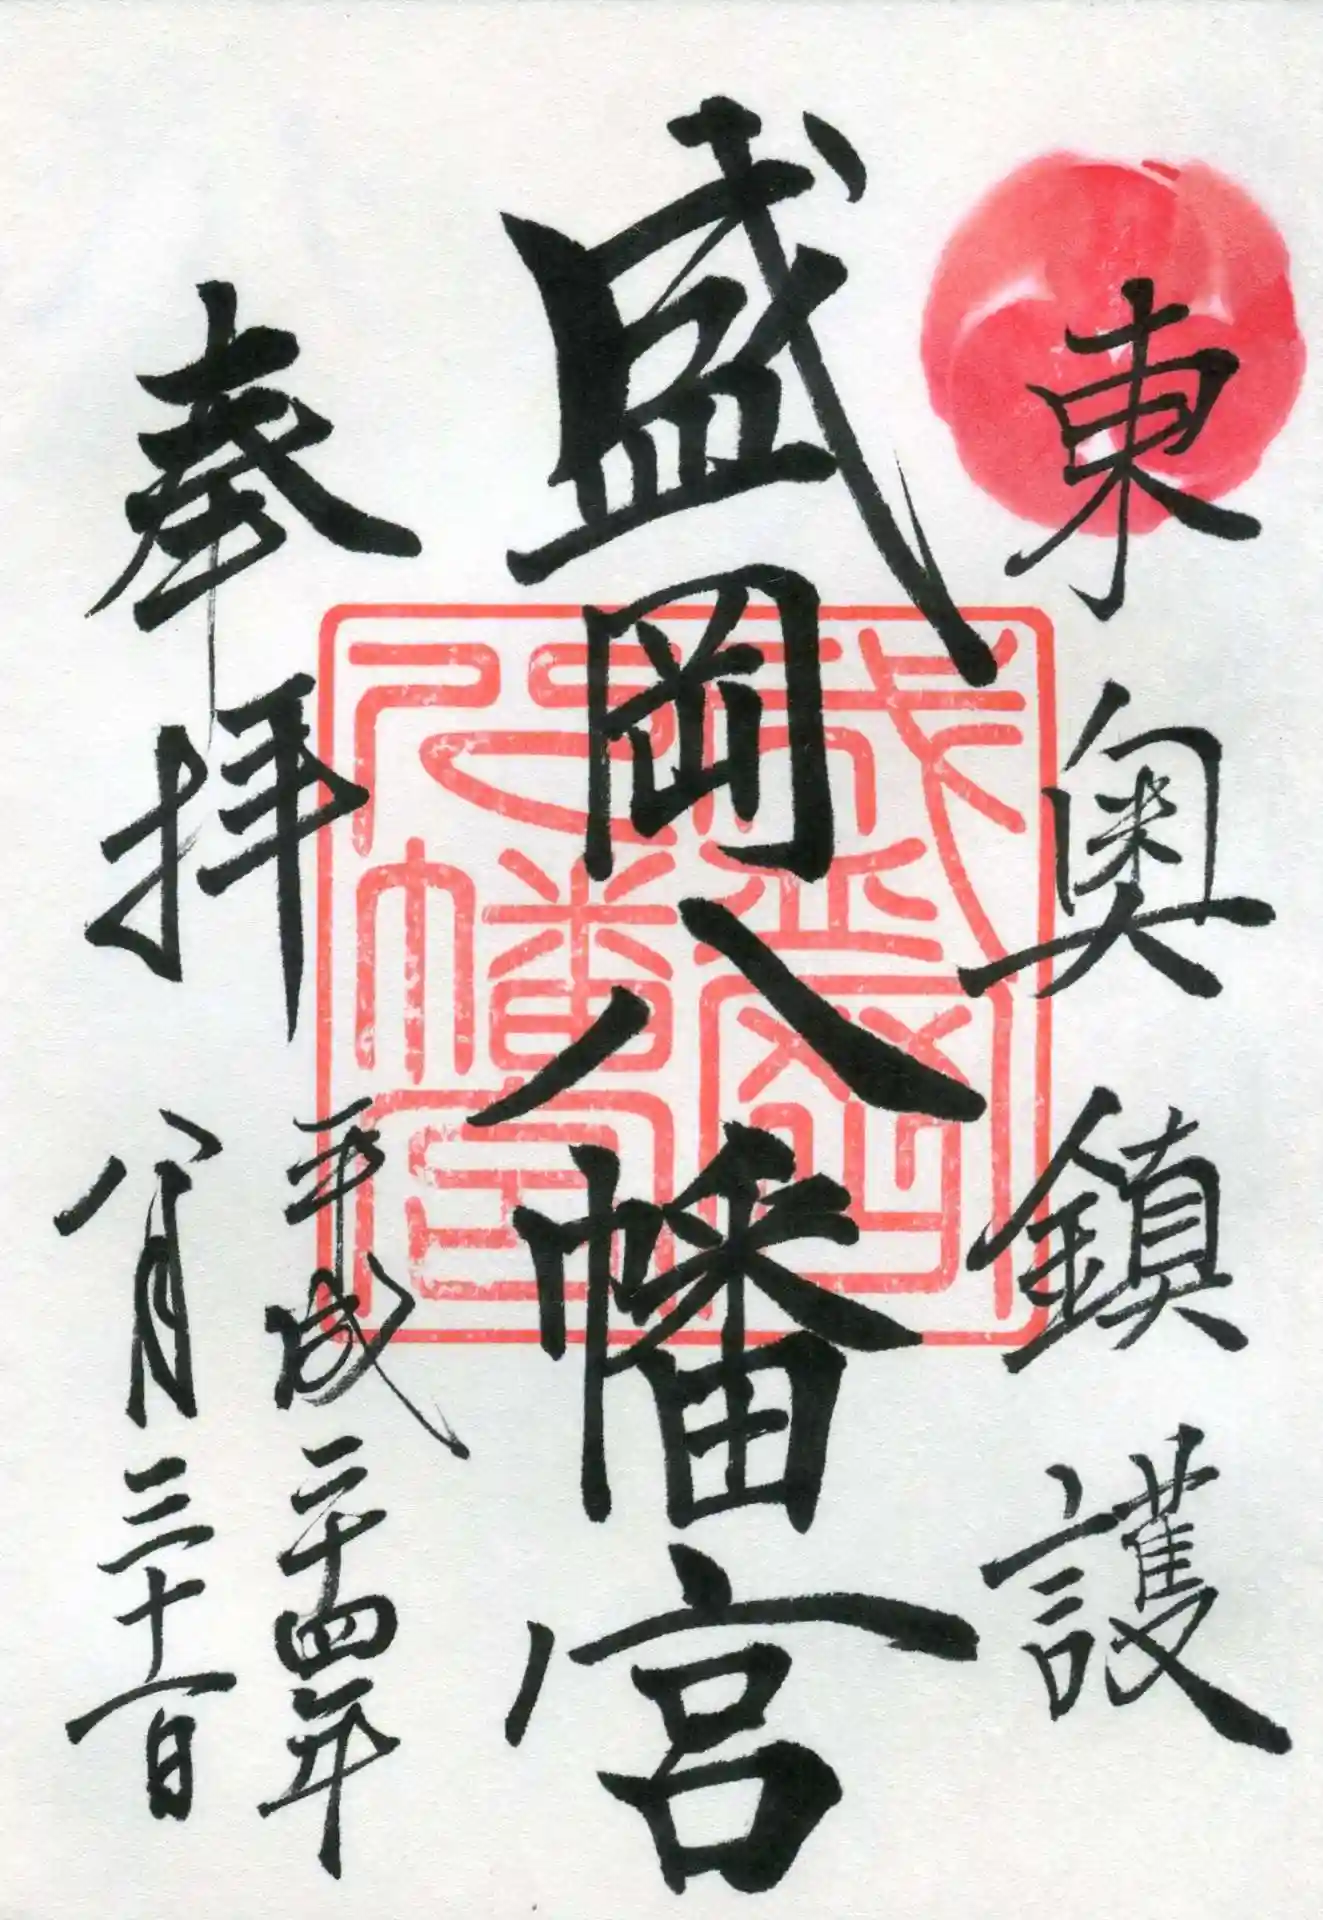 東奥鎮護
盛岡八幡宮
奉拝
平成二十四年
八月三十一日